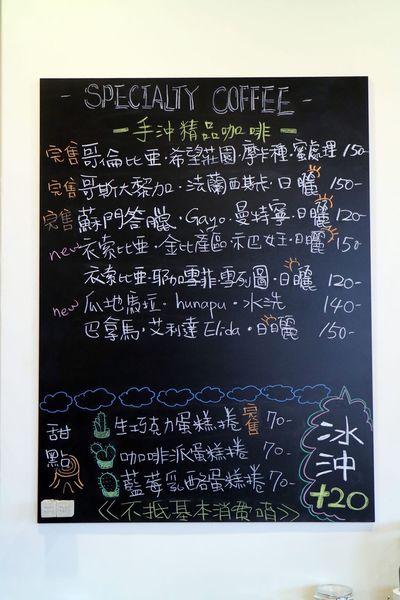 - SPECIALTY COFFEE -
- 手沖精品咖啡 -
完售 哥倫比亞·希望莊園·摩卡種·蜜處理 150-
完售 哥斯大黎加·法蘭西斯卡·日曬 150-
完售 蘇門答臘·Gayo·曼特寧·日曬 120-
new 衣索比亞·金比產區·禾巴女王·日曬 150-
衣索比亞·耶加雪菲·雪列圖·日曬 120-
new 瓜地馬拉·hunapu·水洗 140-
巴拿馬·艾利達 Elida·日曬 150-
甜點
生巧克力蛋糕捲 完售 70-
咖啡派蛋糕捲 70-
藍莓乳酪蛋糕捲 70-
冰沖 +20
《不抵基本消費唷》